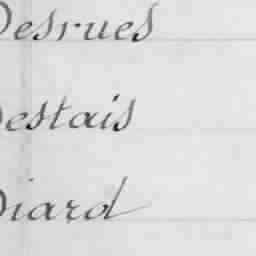 Desrues
Destais
Diard